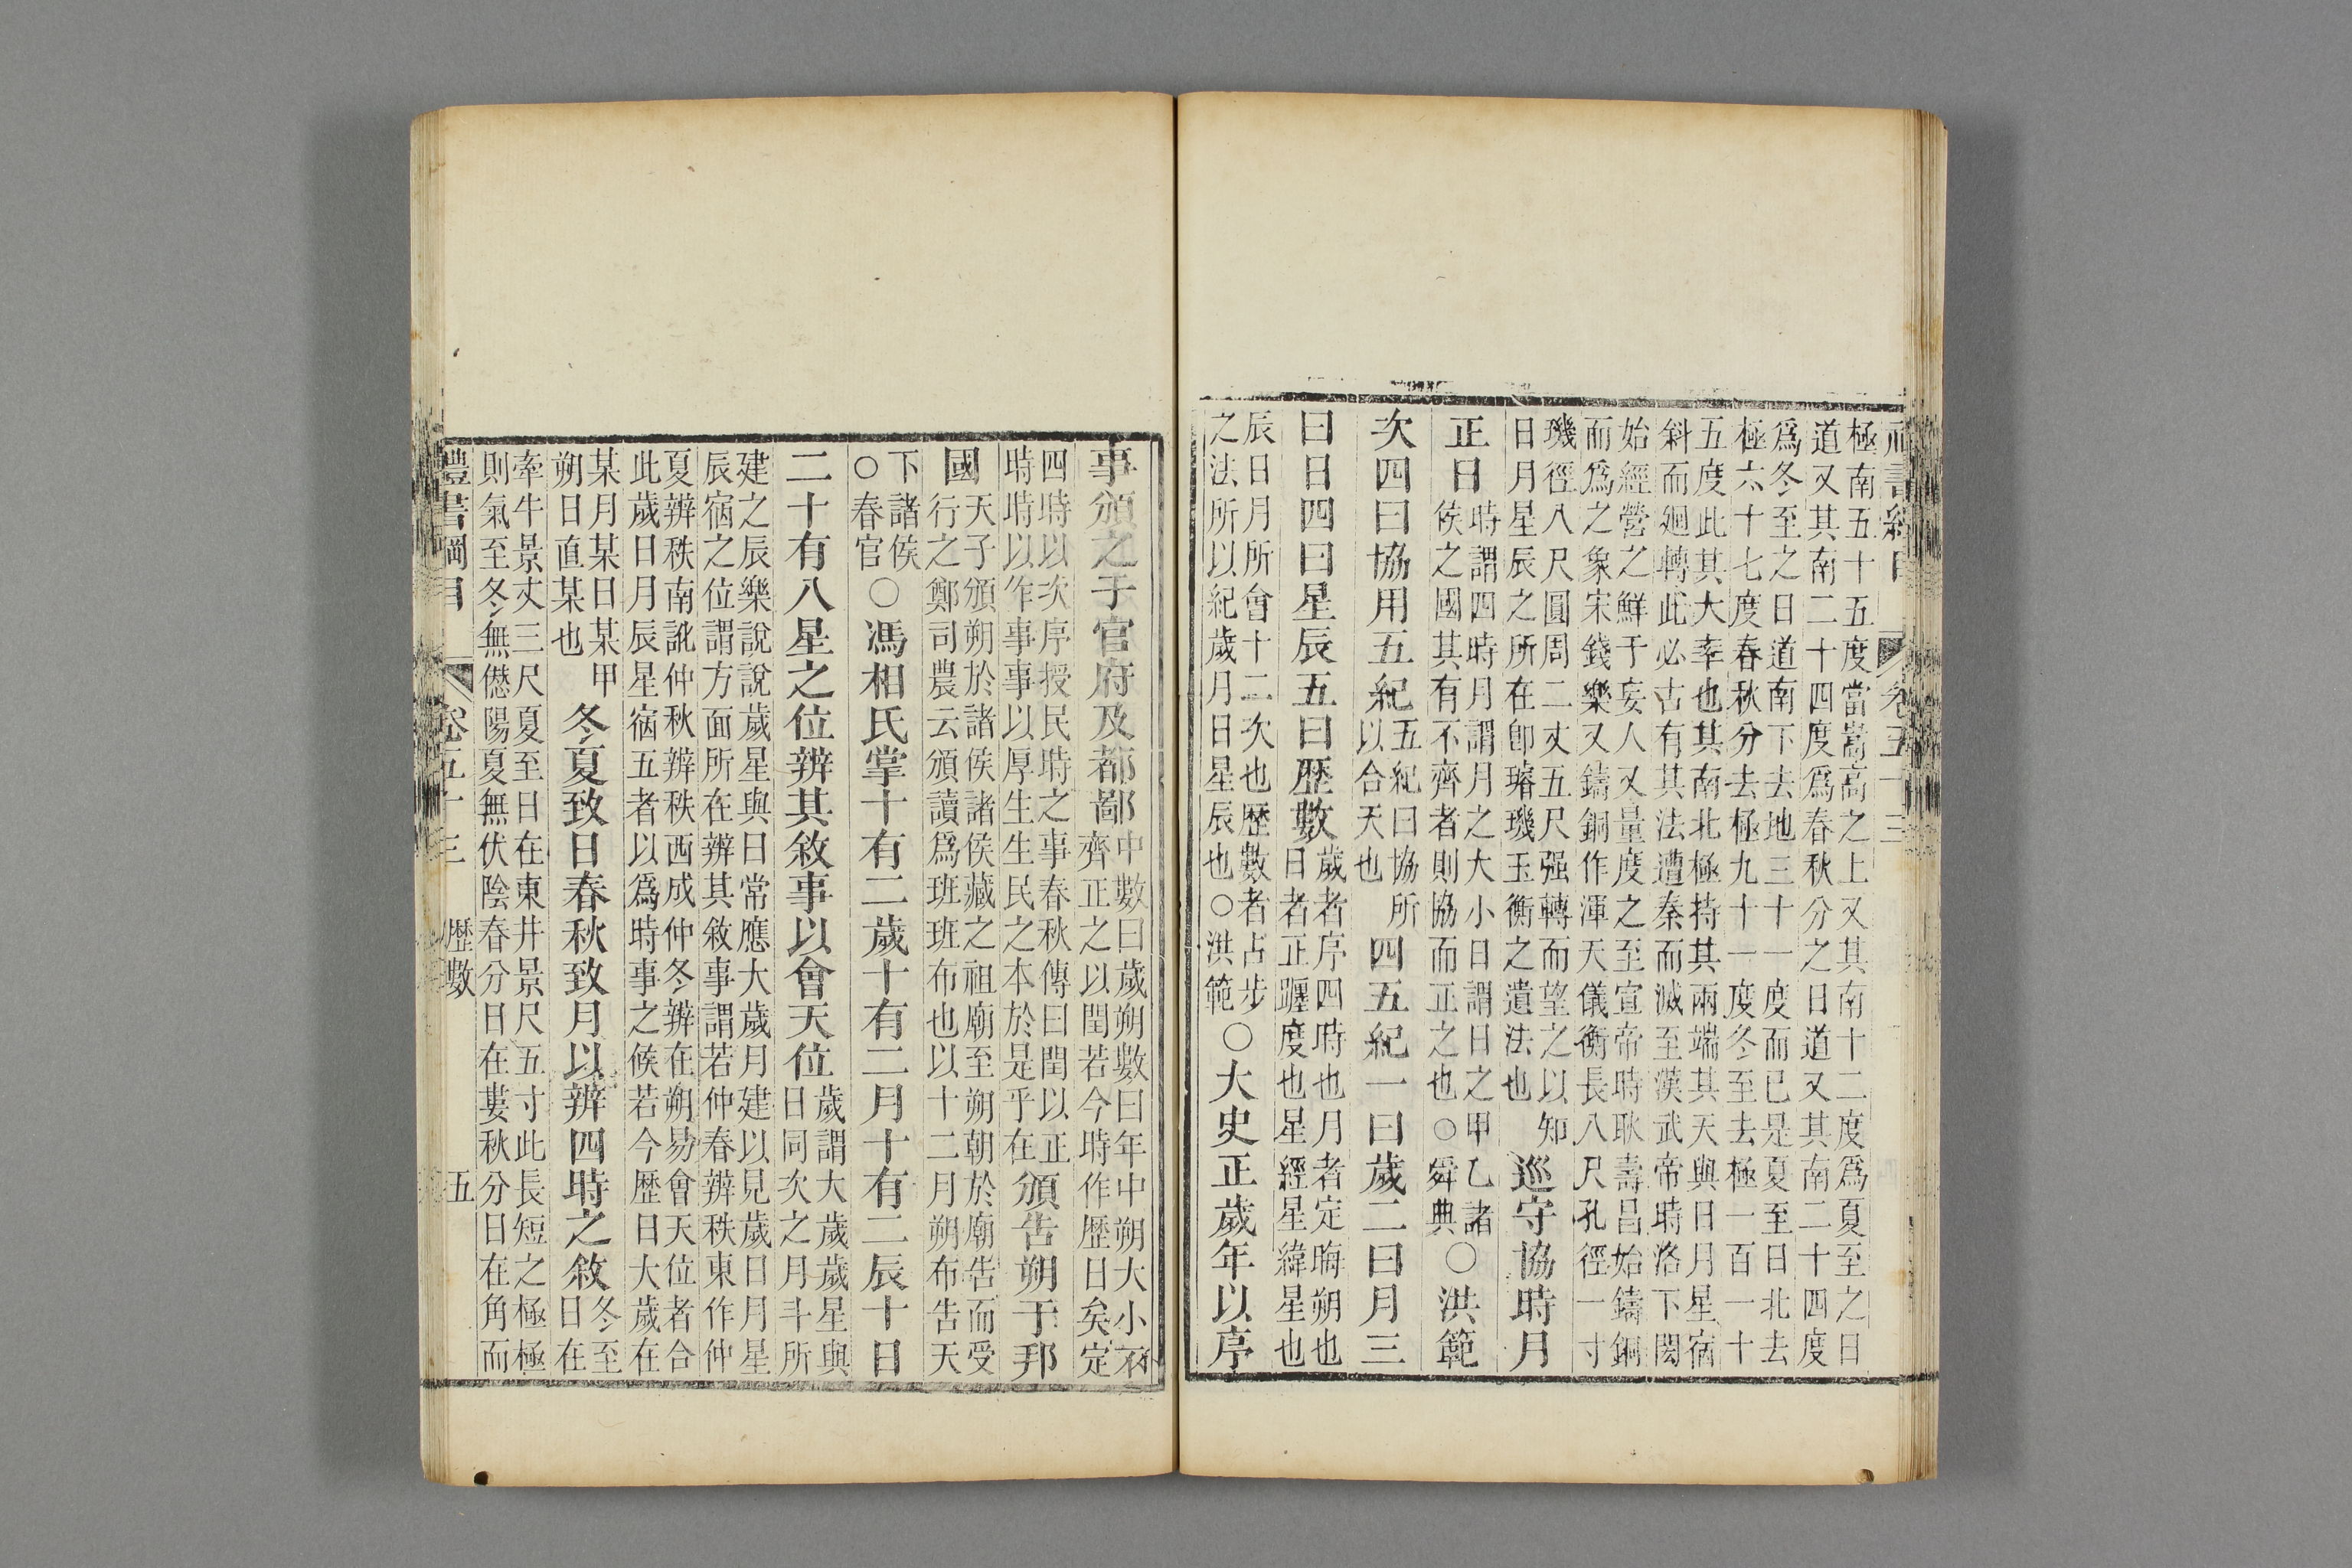 極南五十五度當嵩高之上又其南十二度爲夏至之日
道又其南二十四度爲春秋分之日道又其南二十四度
爲冬至之日道南下去地三十一度而已是夏至日北去
極六十七度春秋分去極九十一度冬至去極一百一十
五度此其大率也其南北極持其兩端其天與日月星宿
斜而廻轉此必古有其法遭秦而滅至漢武帝時洛下閎
始經營之鮮于妄人又量度之至宣帝時耿壽昌始鑄銅
而爲之象宋錢樂又鑄銅作渾天儀衡長八尺孔徑一寸
璣徑八尺圓周二丈五尺强轉而望之以知
日月星辰之所在卽璿璣玉衡之遺法也
巡守協時月
正日
時謂四時月謂月之大小日謂日之甲乙諸
侯之國其有不齊者則協而正之也○舜典
○洪範
次四曰協用五紀
五紀曰協所
以合天也
四五紀一曰歲二曰月三
曰日四曰星辰五曰歷數
歲者序四時也月者定晦朔也
日者正躔度也星經星緯星也
辰日月所會十二次也歷數者占步
之法所以紀歲月日星辰也○洪範
○大史正歲年以序
事頒之于官府及都鄙
中數曰歲朔數曰年中朔大小不
齊正之以閏若今時作歷日矣定
四時以次序授民時之事春秋傳曰閏以正
時時以作事事以厚生生民之本於是乎在
頒告朔于邦
國
天子頒朔於諸侯諸侯藏之祖廟至朔朝於廟告而受
行之鄭司農云頒讀爲班班布也以十二月朔布告天
下諸侯
○春官
○馮相氏掌十有二歲十有二月十有二辰十日
二十有八星之位辨其敘事以會天位
歲謂大歲歲星與
日同次之月斗所
建之辰樂說說歲星與日常應大歲月建以見歲日月星
辰宿之位謂方面所在辨其敘事謂若仲春辨秩東作仲
夏辨秩南訛仲秋辨秩西成仲冬辨在朔易會天位者合
此歲日月辰星宿五者以爲時事之候若今歷日大歲在
某月某日某甲
朔日直某也
冬夏致日春秋致月以辨四時之敘
冬至
日在
牽牛景丈三尺夏至日在東井景尺五寸此長短之極極
則氣至冬無愆陽夏無伏陰春分日在婁秋分日在角而
禮書綱目
卷五十三
歷數
五